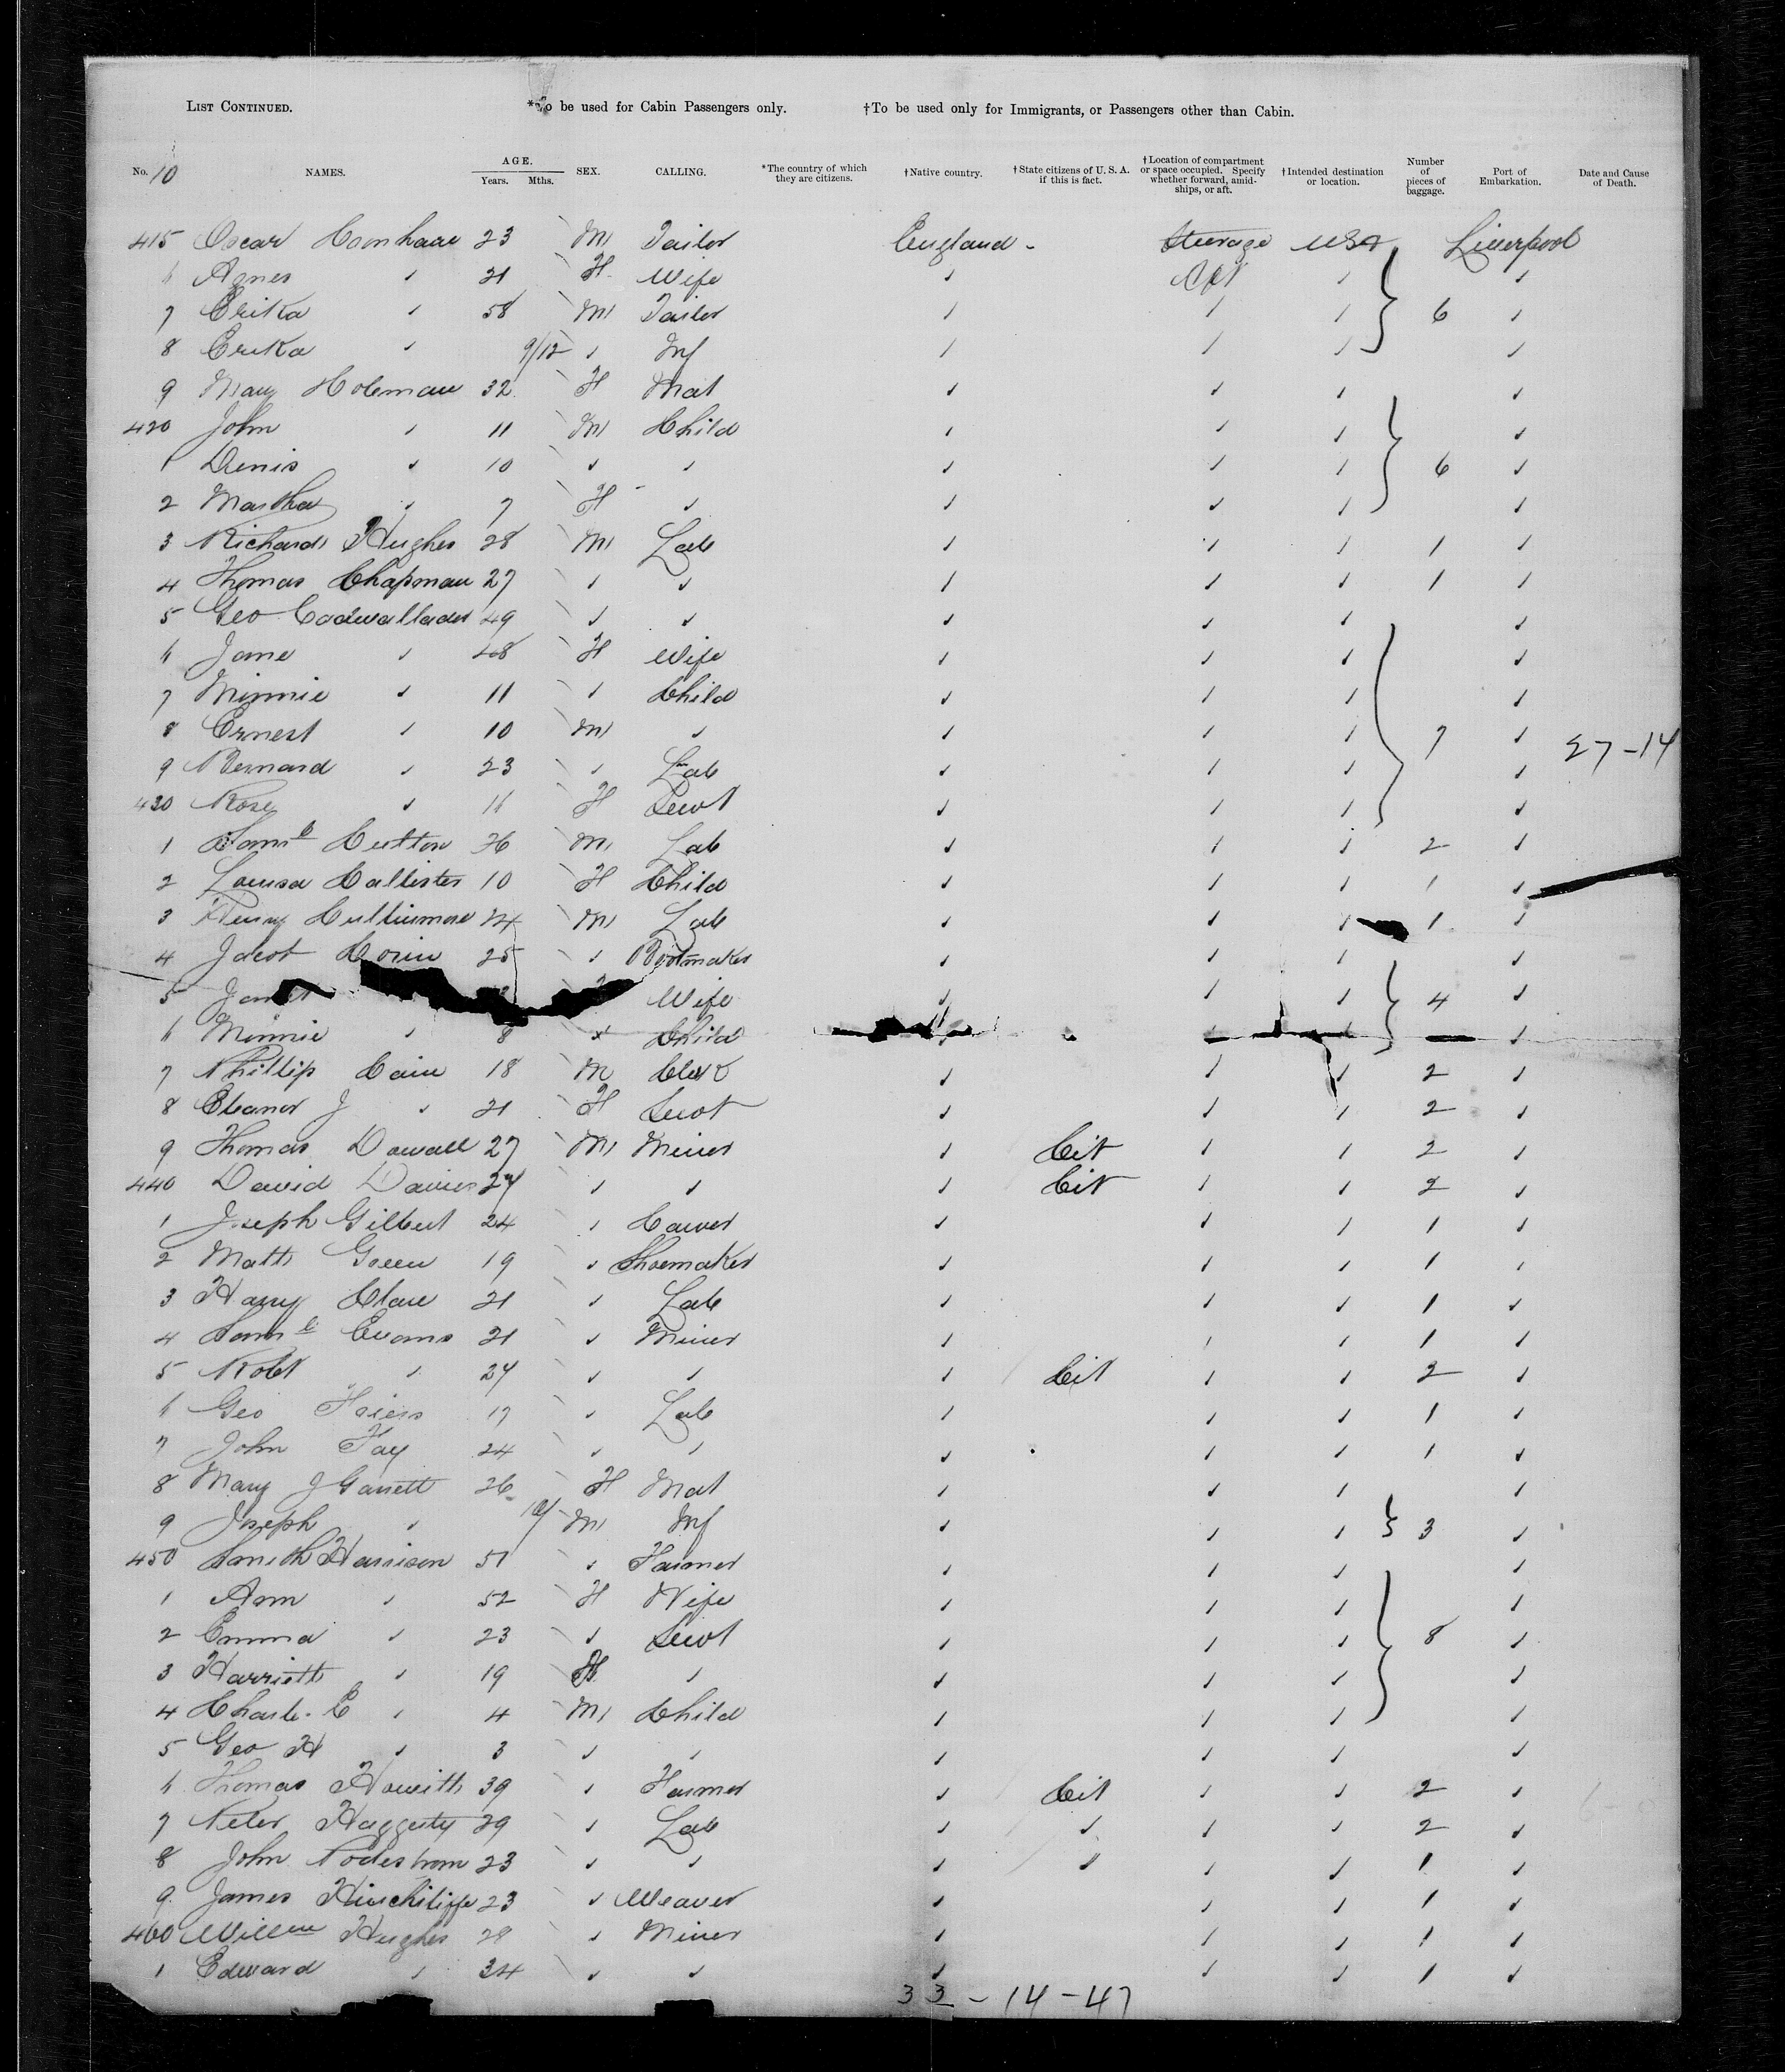 LIST CONTINUED. *To be used for Cabin Passengers only. †To be used only for Immigrants, or Passengers other than Cabin.
No. 10 NAMES. AGE. Years. Mths. SEX. CALLING. *The country of which they are citizens. †Native country. †State citizens of U. S. A. if this is fact. †Location of compartment or space occupied. Specify whether forward, amidships, or aft. †Intended destination or location. Number of pieces of baggage. Port of Embarkation. Date and Cause of Death.
415 Oscar 23 M Tailor England - Steerage USA Liverpool
6 Agnes " 21 F Wife " Aft " "
7 Erika " 58 M Tailor " " " 6 "
8 Erika " 9/12 " Inf " " " "
9 Mary Holeman 32 F Mat " " " "
420 John " 11 M Child " " " "
1 Denis " 10 " " " " " 6 "
2 Martha " 7 F " " " " "
3 Richard Hughes 28 M Lab " " " 1 "
4 Thomas Chapman 27 " " " " " 1 "
5 Geo Cadwallader 49 " " " " " "
6 Jane " 48 F Wife " " " "
7 Minnie " 11 " Child " " " "
8 Ernest " 10 M " " " " 7 " 27-14
9 Bernard " 23 " Lab " " " "
430 Rose " 16 F Servt " " " "
1 Saml Cutton 36 M Lab " " " 2 "
2 Louisa Callister 10 F Child " " " 1 "
3 Henry 24 M Lab " " " 1 "
4 Jacob 25 " Bootmaker " " " "
5 Wife " " " 4 "
6 Minnie " 8 " Child " " " "
7 Phillip Cain 18 M Clerk " " " 2 "
8 Eleanor J " 21 F Servt " " " 2 "
9 Thomas Dowall 27 M Miner " Cit " " 2 "
440 David Davies 27 " " " Cit " " 2 "
1 Joseph Gilbert 24 " Carver " " " 1 "
2 Matth Green 19 " Shoemaker " " " 1 "
3 Harry Clare 21 " Lab " " " 1 "
4 Saml Evans 21 " Miner " " " 1 "
5 Robt " 24 " " " Cit " " 2 "
6 Geo 17 " Lab " " " 1 "
7 John Fay 24 " " " " " 1 "
8 Mary J Garrett 26 F Mat " " " "
9 Joseph " M Inf " " " 3 "
450 Smith Harrison 51 " Farmer " " " "
1 Ann " 52 F Wife " " " "
2 Emma " 23 " Servt " " " 8 "
3 Harriett " 19 F " " " " "
4 Charle. E " 4 M Child " " " "
5 Geo H " 3 " " " " " "
6 Thomas Howith 39 " Farmer " Cit " " 2 "
7 Peter Haggerty 29 " Lab " " " " 2 "
8 John Nodestrom 23 " " " " " " 1 "
9 James Hinchiliffe 23 " Weaver " " " 1 "
460 Willm Hughes 28 " Miner " " " 1 "
1 Edward " 34 " " " " " 1 "
33-14-47